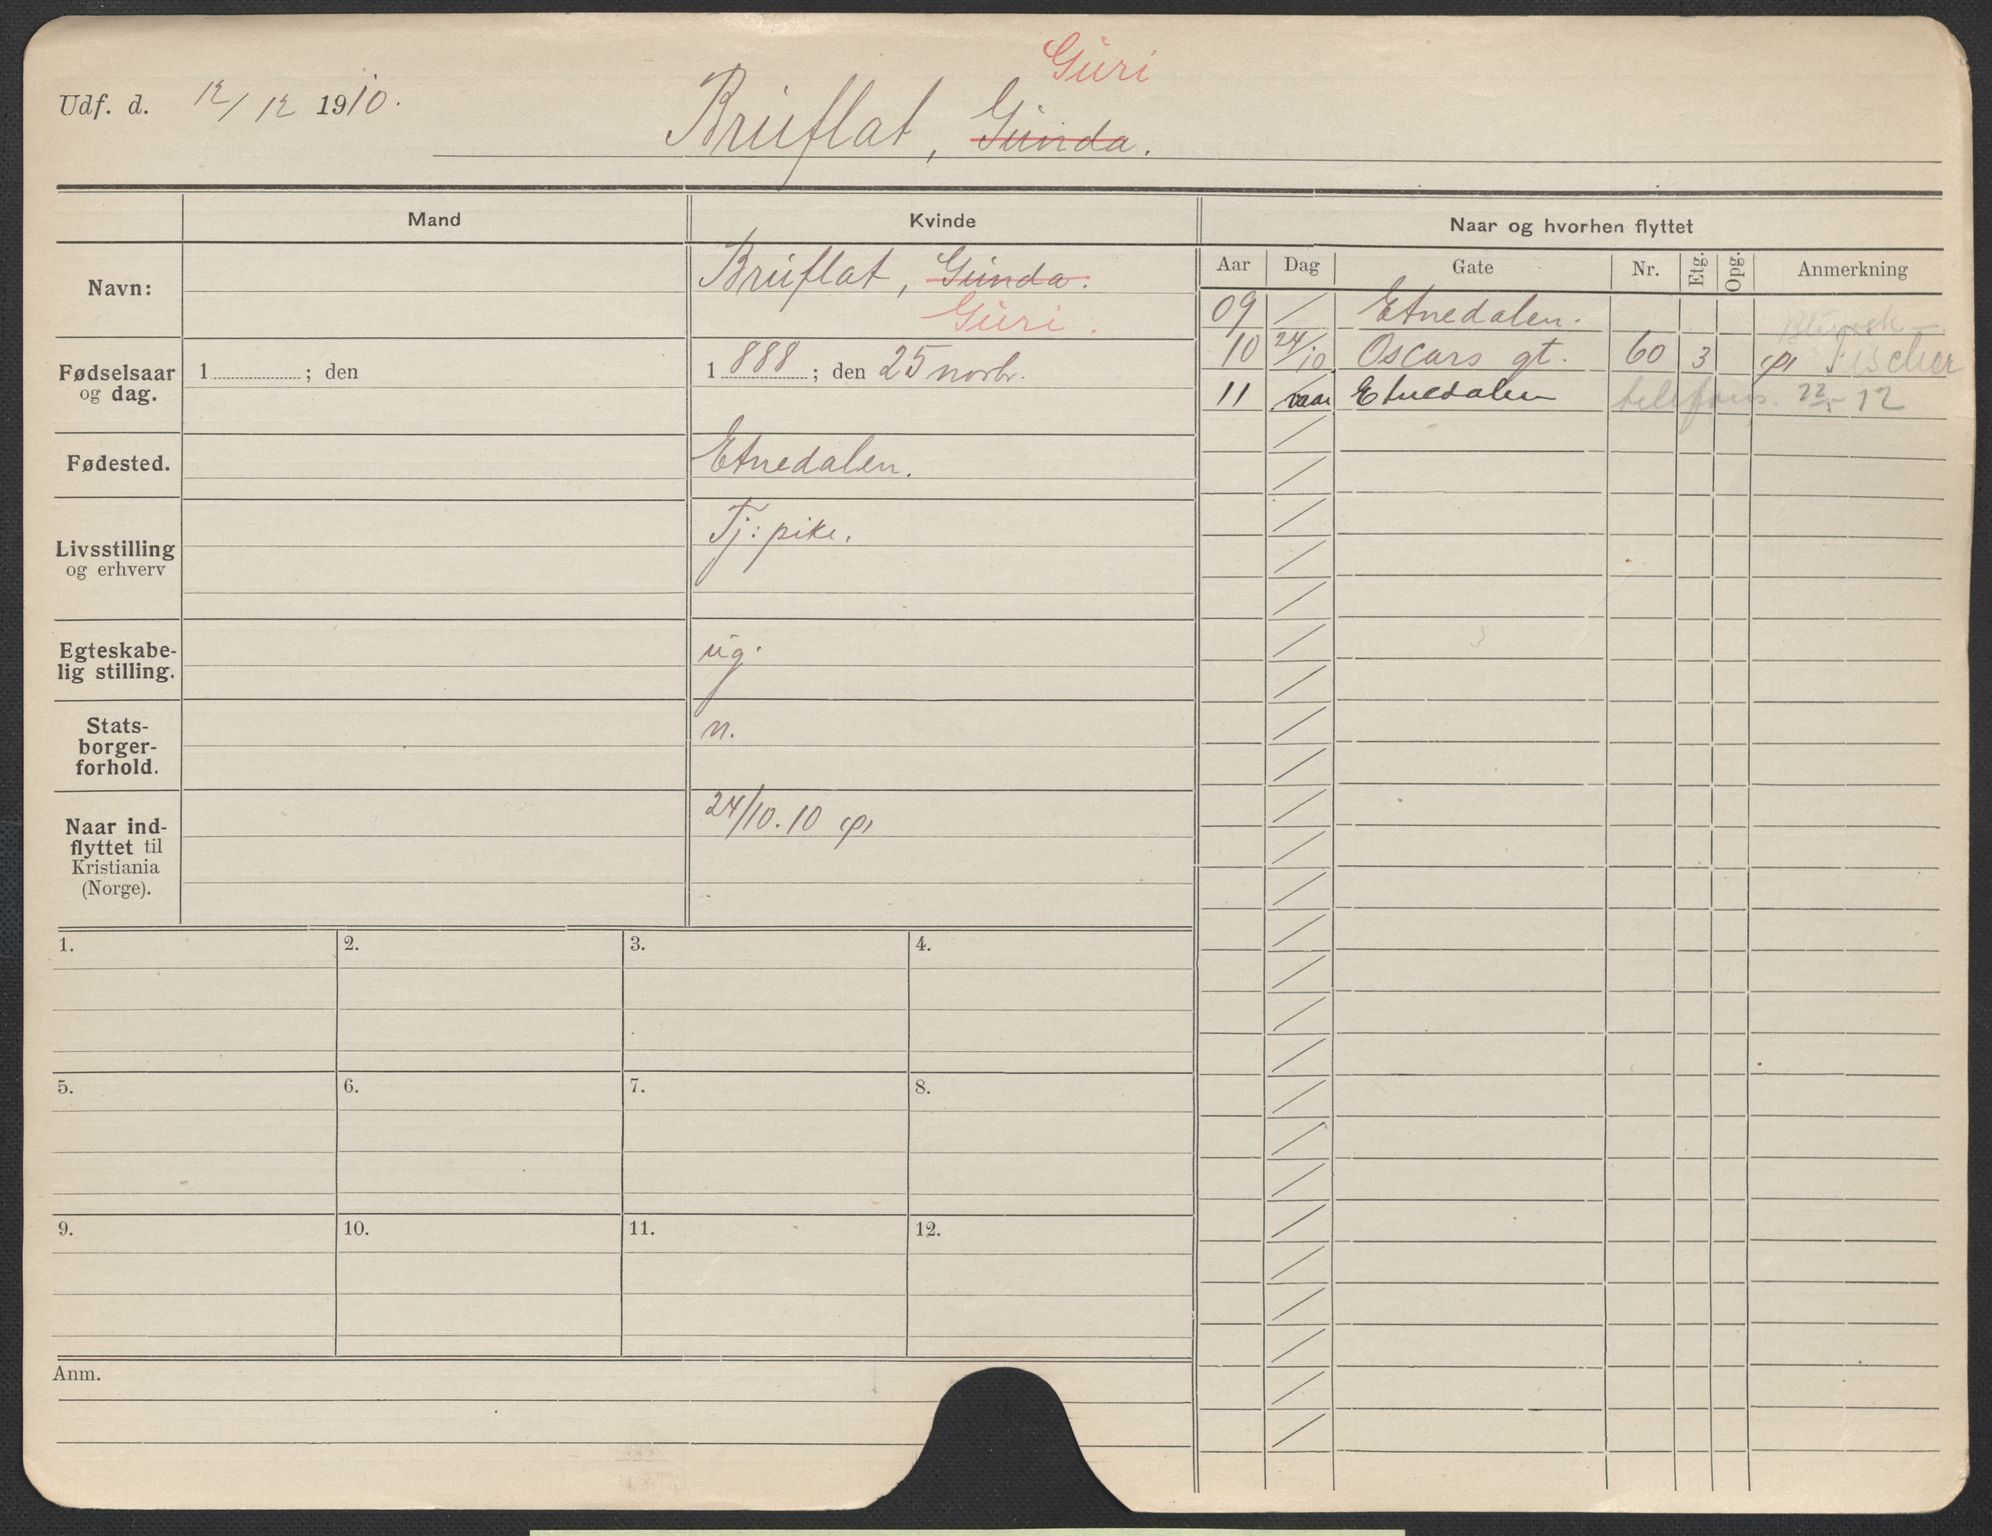 Guri
Udf. d. 12/12 1910.
Bruflat, Gunda.
Mand
Kvinde
Naar og hvorhen flyttet
Aar Dag Gate Nr. Etg. Opg. Anmerkning
Navn:
Bruflat, Gunda.
Guri.
Fødselsaar
og dag.
1 ; den
1888 ; den 25 novbr.
Fødested.
Etnedalen.
Livsstilling
og erhverv
Tj: pike.
Egteskabe-
lig stilling.
ug.
Stats-
borger-
forhold.
n.
Naar ind-
flyttet til
Kristiania
(Norge).
24/10.10 (p)
09 / Etnedalen.
10 24/10 Oscars gt. 60 3 (p) Fischer
11 vaar Etnedalen telefon 12
1.
2.
3.
4.
5.
6.
7.
8.
9.
10.
11.
12.
Anm.